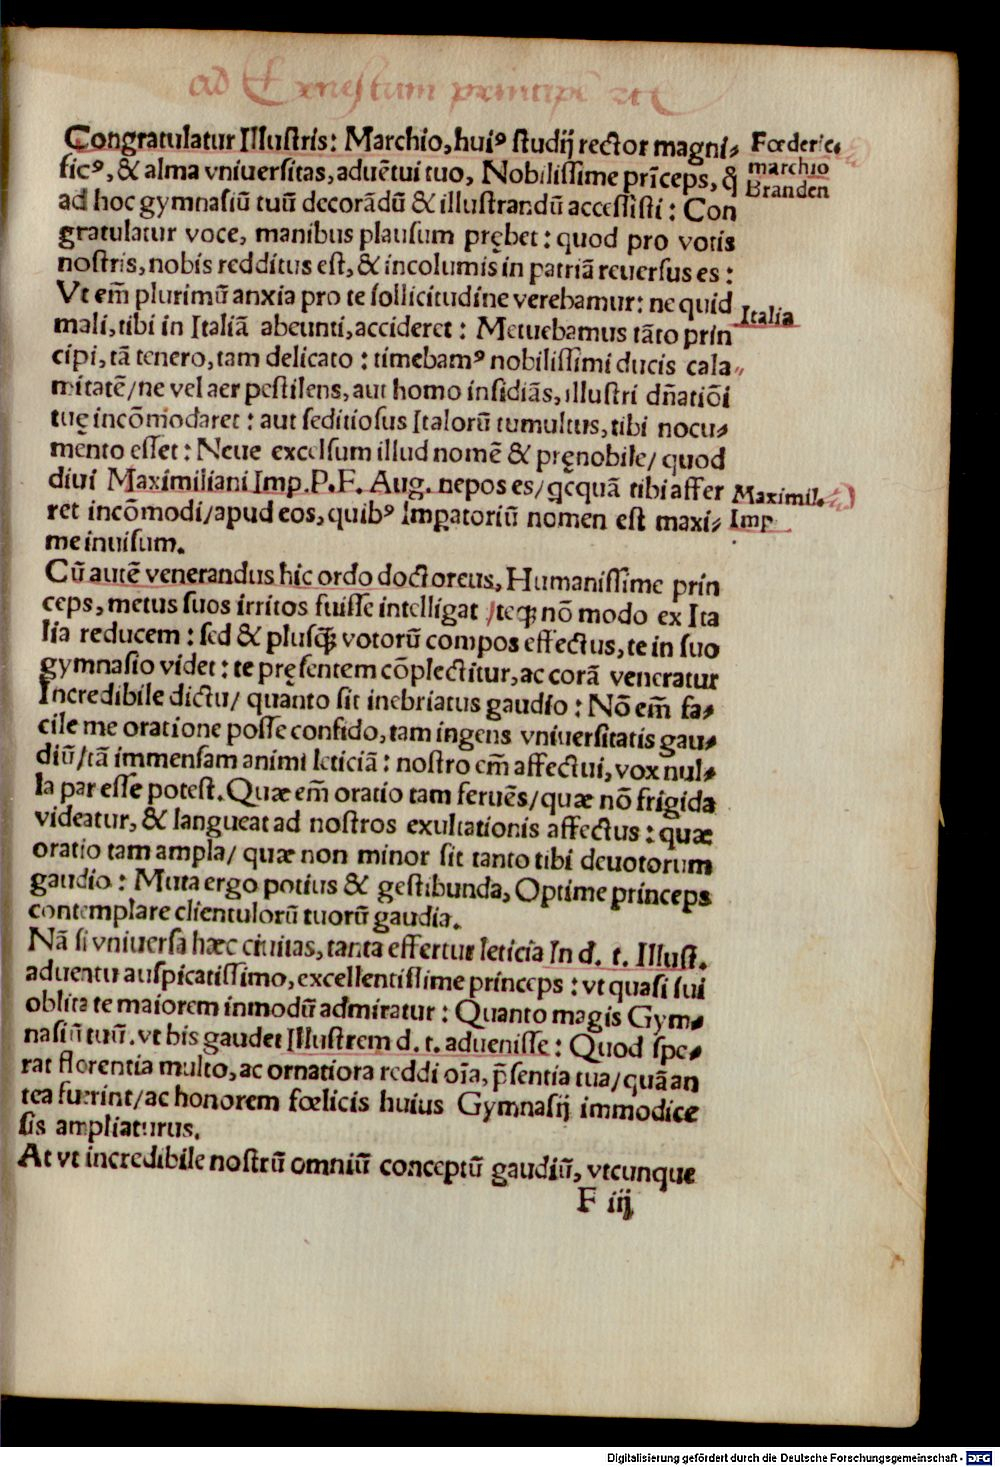 ad Ernestum principē etc
Congratulatur Illustris: Marchio, huiꝰ studij rector magni⸗
Fœderic⸗
ficꝰ, & alma vniuersitas, aduētui tuo, Nobilissime prīceps, ꝙ
marchio
ad hoc gymnasiū tuū decorādū & illustrandū accessisti: Con
Branden
gratulatur voce, manibus plausum prębet: quod pro votis
nostris, nobis redditus est, & incolumis in patriā reuersus es:
Vt em̄ plurimū anxia pro te sollicitudine verebamur: ne quid
Italia
mali, tibi in Italiā abeunti, accideret: Metuebamus tāto prin
cipi, tā tenero, tam delicato: timebamꝰ nobilissimi ducis cala⸗
mitatē/ ne vel aer pestilens, aut homo insidiās, illustri dn̄atiōi
tuę incōmodaret: aut seditiosus Italorū tumultus, tibi nocu⸗
mento esset: Neue excelsum illud nomē & pręnobile/ quod
diui Maximiliani Imp. P. F. Aug. nepos es/ qcquā tibi affer
Maximil.
ret incōmodi/ apud eos, quibꝰ Imꝑatoriū nomen est maxi⸗
Imp
me inuisum.
Cū autē venerandus hic ordo doctoreus, Humanissime prin
ceps, metus suos irritos fuisse intelligat /teqꝫ nō modo ex Ita
lia reducem: sed & plusꝗꝫ votorū compos effectus, te in suo
gymnasio videt: te pręsentem cōplectitur, ac corā veneratur
Incredibile dictu/ quanto sit inebriatus gaudio: Nō em̄ fa⸗
cile me oratione posse confido, tam ingens vniuersitatis gau⸗
diū/ tā immensam animi leticiā: nostro em̄ affectui, vox nul⸗
la par esse potest. Quæ em̄ oratio tam feruēs/ quæ nō frigida
videatur, & langueat ad nostros exultationis affectus: quæ
oratio tam ampla/ quæ non minor sit tanto tibi deuotorum
gaudio: Muta ergo potius & gestibunda, Optime princeps
contemplare clientulorū tuorū gaudia.
Nā si vniuersa hæc ciuitas, tanta effertur leticia In d. t. Illust.
aduentu auspicatissimo, excellentissime princeps: vt quasi sui
oblita te maiorem inmodū admiratur: Quanto magis Gym⸗
nasiū tuū. vt bis gaudet Illustrem d. t. aduenisse: Quod spe⸗
rat florentia multo, ac ornatiora reddi oīa, p̄sentia tua/ quā an
tea fuerint/ ac honorem fœlicis huius Gymnasij immodice
sis ampliaturus.
At vt incredibile nostrū omniū conceptū gaudiū, vtcunque
F iij
Digitalisierung gefördert durch die Deutsche Forschungsgemeinschaft - DFG